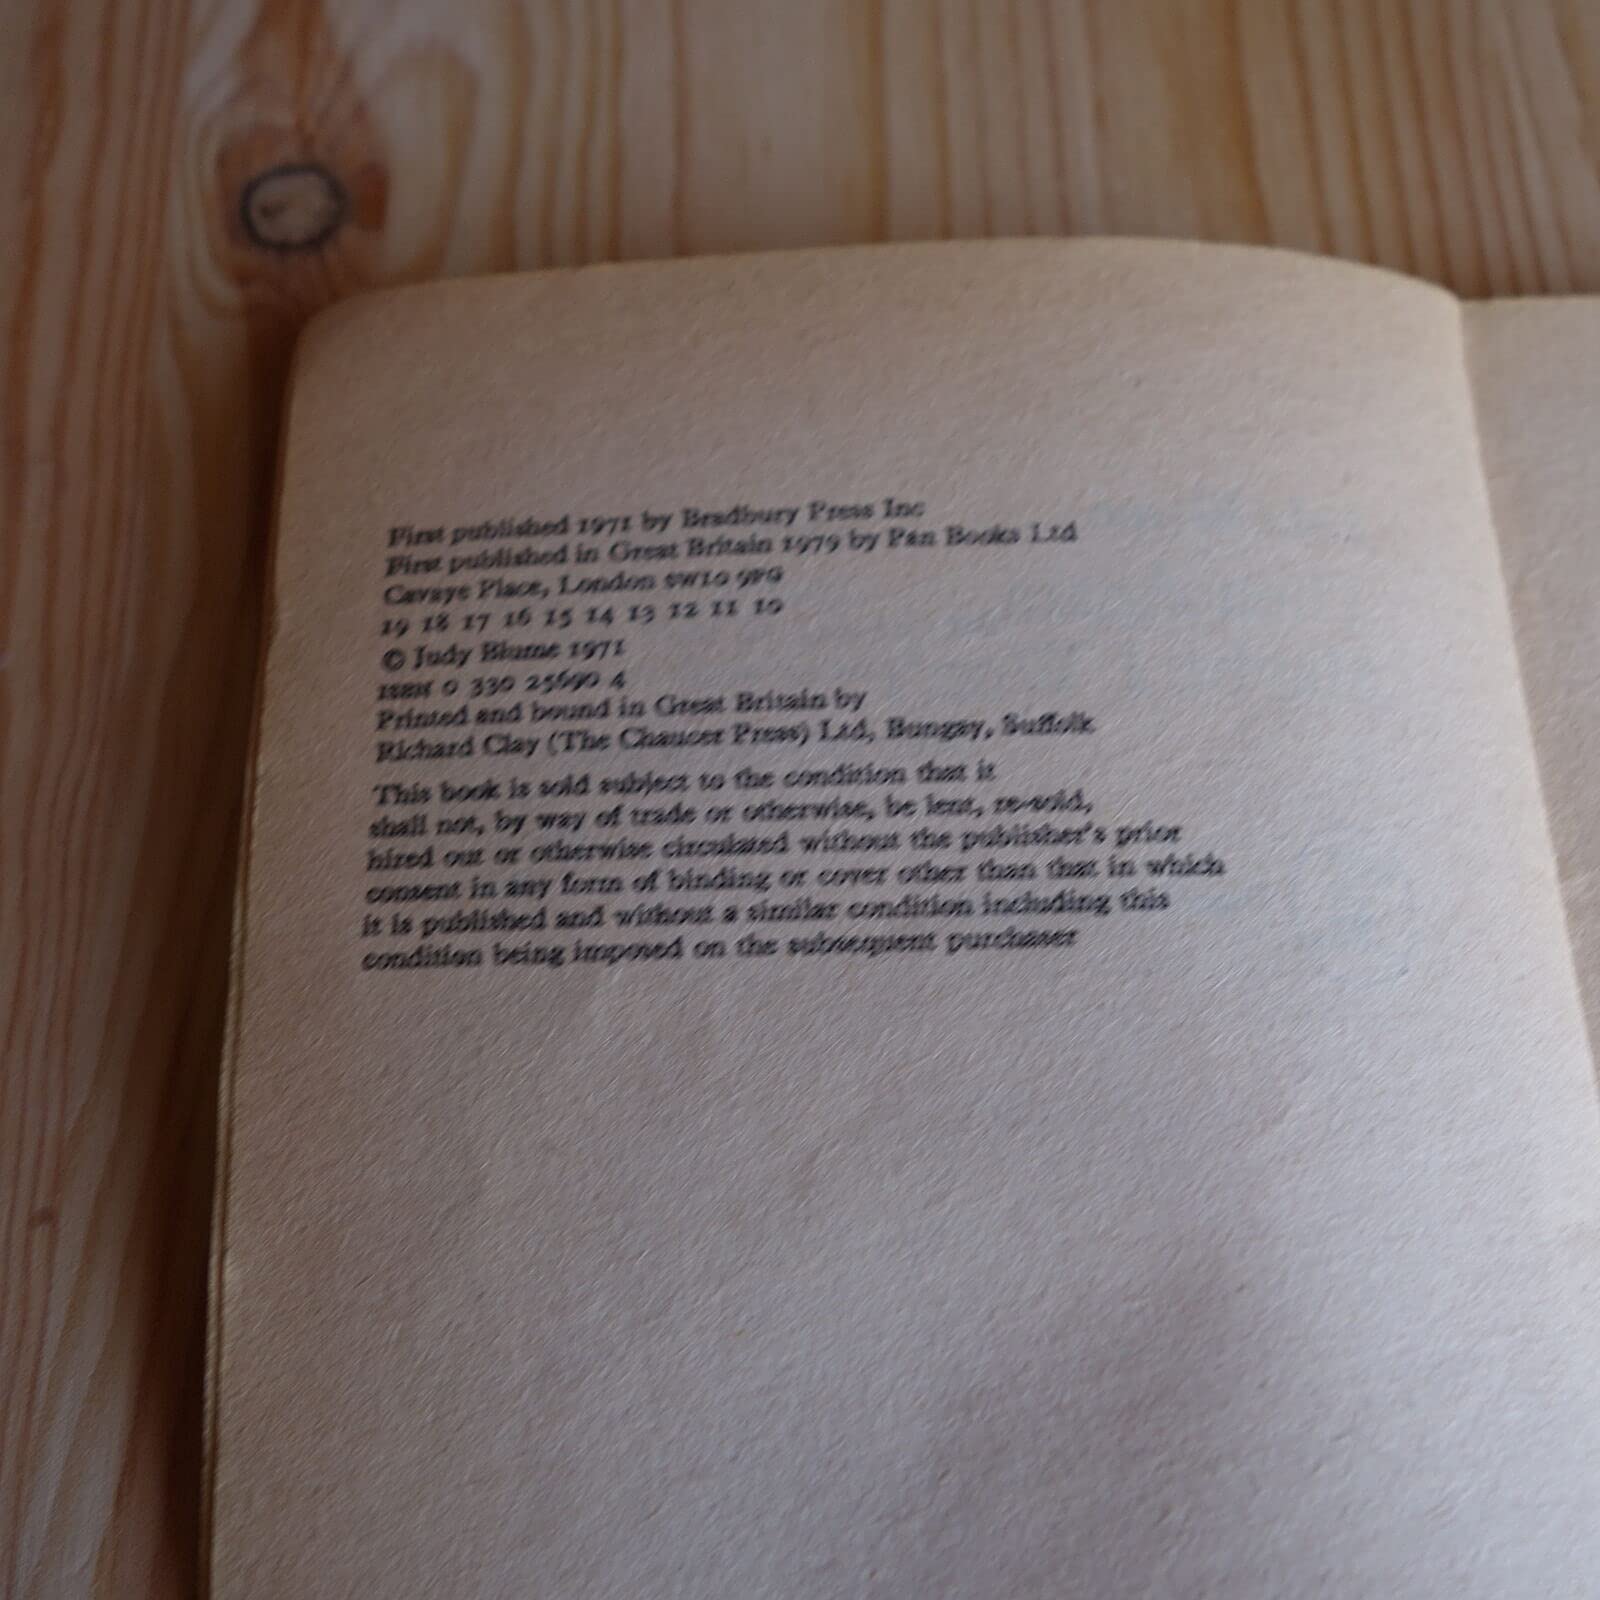 First published 1971 by Bradbury Press Inc
First published in Great Britain 1979 by Pan Books Ltd
Cavaye Place, London SW10 9PG
19 18 17 16 15 14 13 12 11 10
© Judy Blume 1971
ISBN 0 330 25690 4
Printed and bound in Great Britain by
Richard Clay (The Chaucer Press) Ltd, Bungay, Suffolk
This book is sold subject to the condition that it
shall not, by way of trade or otherwise, be lent, re-sold,
hired out or otherwise circulated without the publisher's prior
consent in any form of binding or cover other than that in which
it is published and without a similar condition including this
condition being imposed on the subsequent purchaser